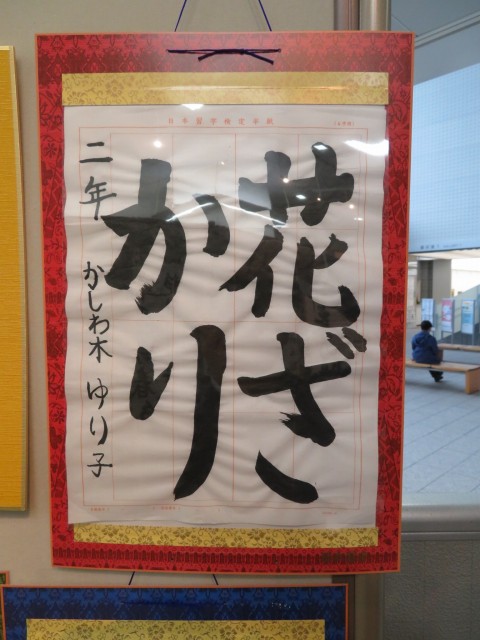 日本習字検定半紙
花ざ
かり
二年 かしわ木 ゆり子